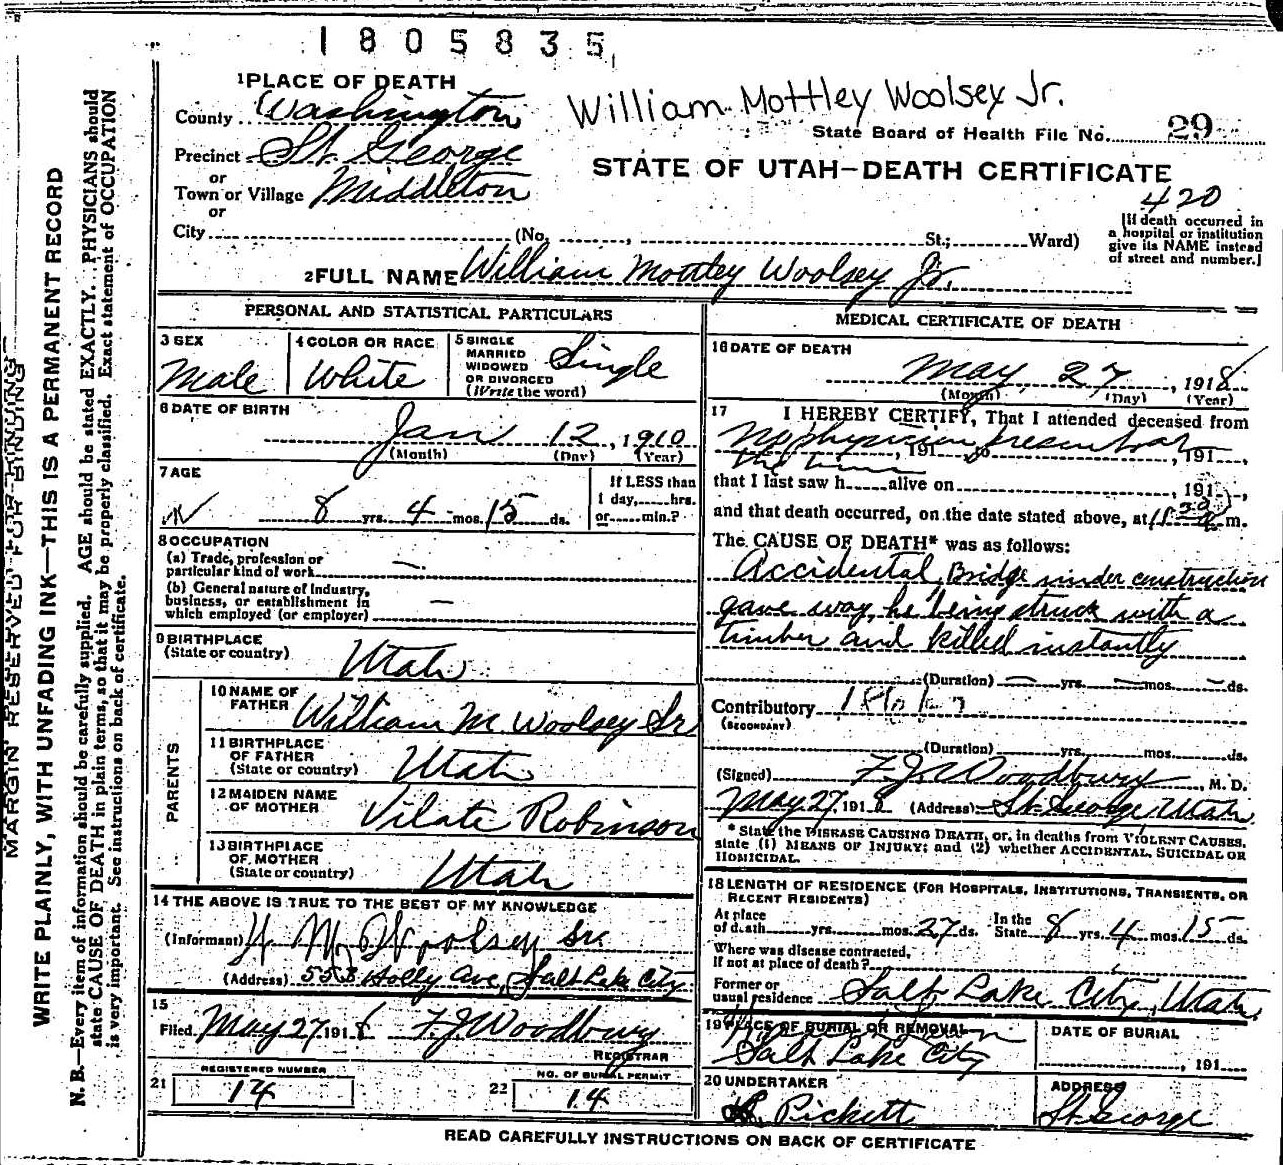 1805835
William Mottley Woolsey Jr.
1 PLACE OF DEATH
County Washington
State Board of Health File No. 29
Precinct St. George
or
Town or Village Middleton
or
City (No. , St.; Ward)
STATE OF UTAH—DEATH CERTIFICATE
420
[If death occurred in
a hospital or institution
give its NAME instead
of street and number.]
2 FULL NAME William Mottley Woolsey Jr.
PERSONAL AND STATISTICAL PARTICULARS
3 SEX
Male
4 COLOR OR RACE
White
5 SINGLE
MARRIED
WIDOWED
OR DIVORCED
(Write the word)
Single
6 DATE OF BIRTH
Jan 12, 1910
(Month) (Day) (Year)
7 AGE
8 yrs. 4 mos. 15 ds.
If LESS than
1 day, hrs.
or min.?
8 OCCUPATION
(a) Trade, profession or
particular kind of work —
(b) General nature of industry,
business, or establishment in
which employed (or employer) —
9 BIRTHPLACE
(State or country)
Utah
PARENTS
10 NAME OF
FATHER
William M. Woolsey Sr
11 BIRTHPLACE
OF FATHER
(State or country)
Utah
12 MAIDEN NAME
OF MOTHER
Vilate Robinson
13 BIRTHPLACE
OF MOTHER
(State or country)
Utah
14 THE ABOVE IS TRUE TO THE BEST OF MY KNOWLEDGE
(Informant) W M Woolsey Sr.
(Address) 553 Holly Ave, Salt Lake City
15
Filed May 27 1918 F. J. Woodbury
REGISTRAR
21
REGISTERED NUMBER
14
22
NO. OF BURIAL PERMIT
14
MEDICAL CERTIFICATE OF DEATH
16 DATE OF DEATH
May 27, 1918
(Month) (Day) (Year)
17 I HEREBY CERTIFY, That I attended deceased from
No physician present at , 191 , to , 191 ,
the time
that I last saw h alive on , 191 ,
and that death occurred, on the date stated above, at m.
The CAUSE OF DEATH* was as follows:
Accidental, Bridge under construction
gave way, he being struck with a
timber and killed instantly
(Duration) — yrs. — mos. — ds.
Contributory
(SECONDARY)
(Duration) yrs. mos. ds.
(Signed) F. J. Woodbury , M. D.
May 27, 1918 (Address) St. George, Utah
* State the DISEASE CAUSING DEATH, or, in deaths from VIOLENT CAUSES,
state (1) MEANS OF INJURY; and (2) whether ACCIDENTAL, SUICIDAL OR
HOMICIDAL.
18 LENGTH OF RESIDENCE (FOR HOSPITALS, INSTITUTIONS, TRANSIENTS, OR
RECENT RESIDENTS)
At place
of death yrs. mos. 27 ds.
In the
State 8 yrs. 4 mos. 15 ds.
Where was disease contracted,
If not at place of death?
Former or
usual residence Salt Lake City, Utah
19 PLACE OF BURIAL OR REMOVAL
Salt Lake City
DATE OF BURIAL
, 191
20 UNDERTAKER
Pickett
ADDRESS
St. George
READ CAREFULLY INSTRUCTIONS ON BACK OF CERTIFICATE
MARGIN RESERVED FOR BINDING
WRITE PLAINLY, WITH UNFADING INK—THIS IS A PERMANENT RECORD
N. B.—Every item of information should be carefully supplied. AGE should be stated EXACTLY. PHYSICIANS should
state CAUSE OF DEATH in plain terms, so that it may be properly classified. Exact statement of OCCUPATION
is very important. See instructions on back of certificate.